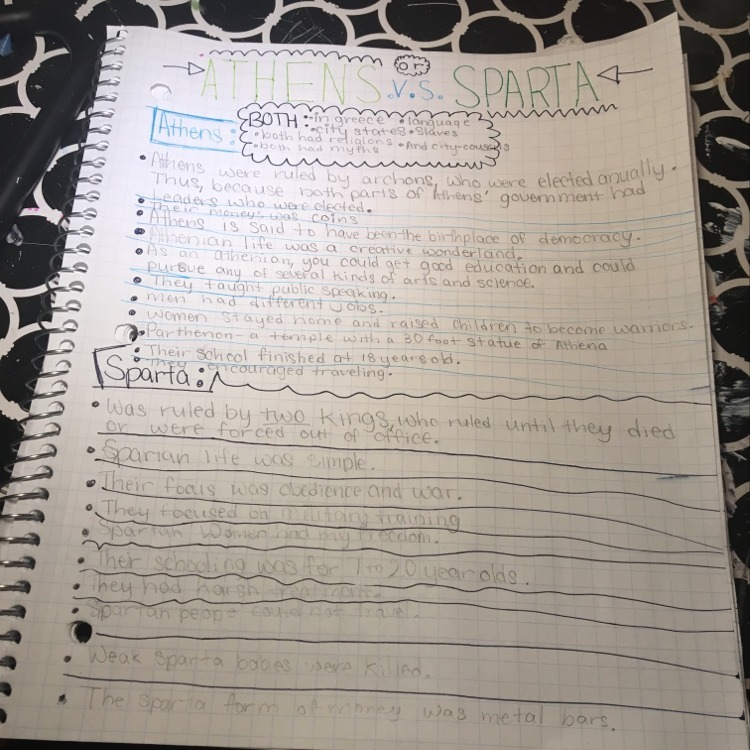 or
ATHENS .V.S. SPARTA
BOTH: •in greece •language
•city states •Slaves
•both had religions
•both had myths •And city-councils
Athens:
• Athens were ruled by archons, who were elected anually.
Thus, because both parts of Athens' government had
• Leaders who were elected.
• Their money was coins
• Athens is said to have been the birthplace of democracy.
• Athenian life was a creative wonderland.
• As an athenian, you could get good education and could
pursue any of several kinds of arts and science.
• They taught public speaking.
• men had different jobs.
• women stayed home and raised children to become warriors.
• Parthenon- a temple with a 30 foot statue of Athena
• Their school finished at 18 years old.
• They encouraged traveling.
Sparta:
• Was ruled by two kings, who ruled until they died
or were forced out of office.
• Spartan life was simple.
• Their focus was obedience and war.
• They focused on military training
• Spartan women had freedom.
• Their schooling was for 7 to 20 year olds.
• They had harsh treatment.
• Spartan peope could not travel.
• Weak Sparta babies were killed.
• The sparta form of money was metal bars.